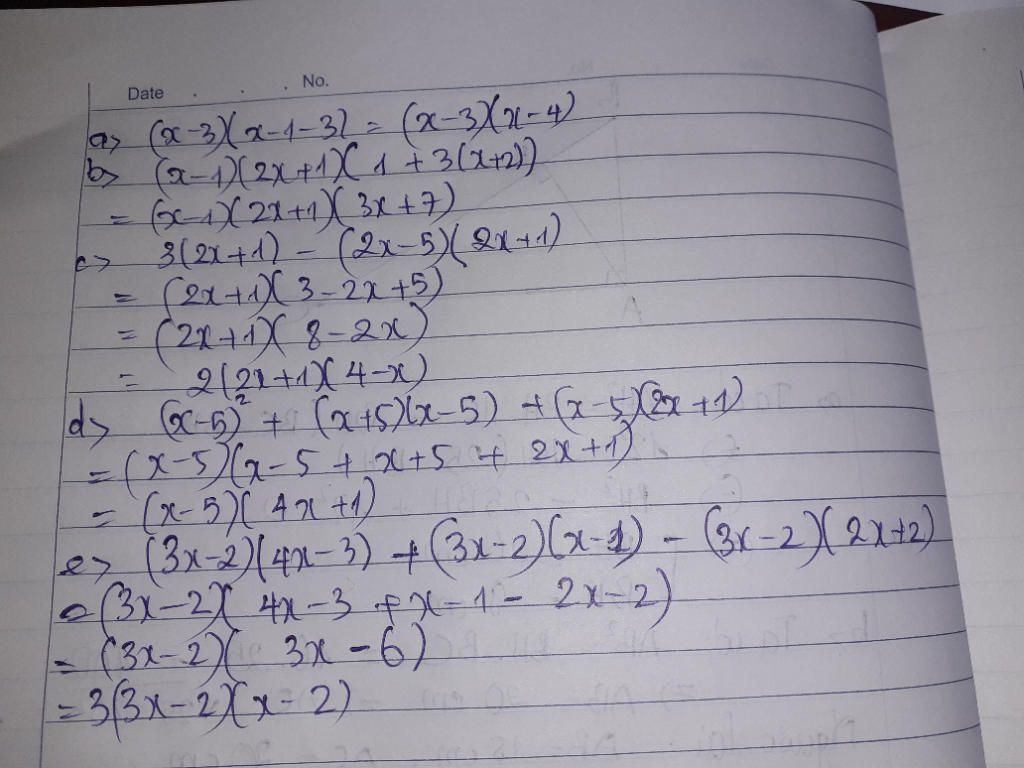 Date . . . No.
a> (x-3)(x-1-3) = (x-3)(x-4)
b> (x-1)(2x+1)(1+3(x+2))
= (x-1)(2x+1)(3x+7)
c> 3(2x+1) - (2x-5)(2x+1)
= (2x+1)(3-2x+5)
= (2x+1)(8-2x)
= 2(2x+1)(4-x)
d> (x-5)² + (x+5)(x-5) + (x-5)(2x+1)
= (x-5)(x-5+x+5+2x+1)
= (x-5)(4x+1)
e> (3x-2)(4x-3) + (3x-2)(x-1) - (3x-2)(2x+2)
= (3x-2)(4x-3+x-1-2x-2)
= (3x-2)(3x-6)
= 3(3x-2)(x-2)